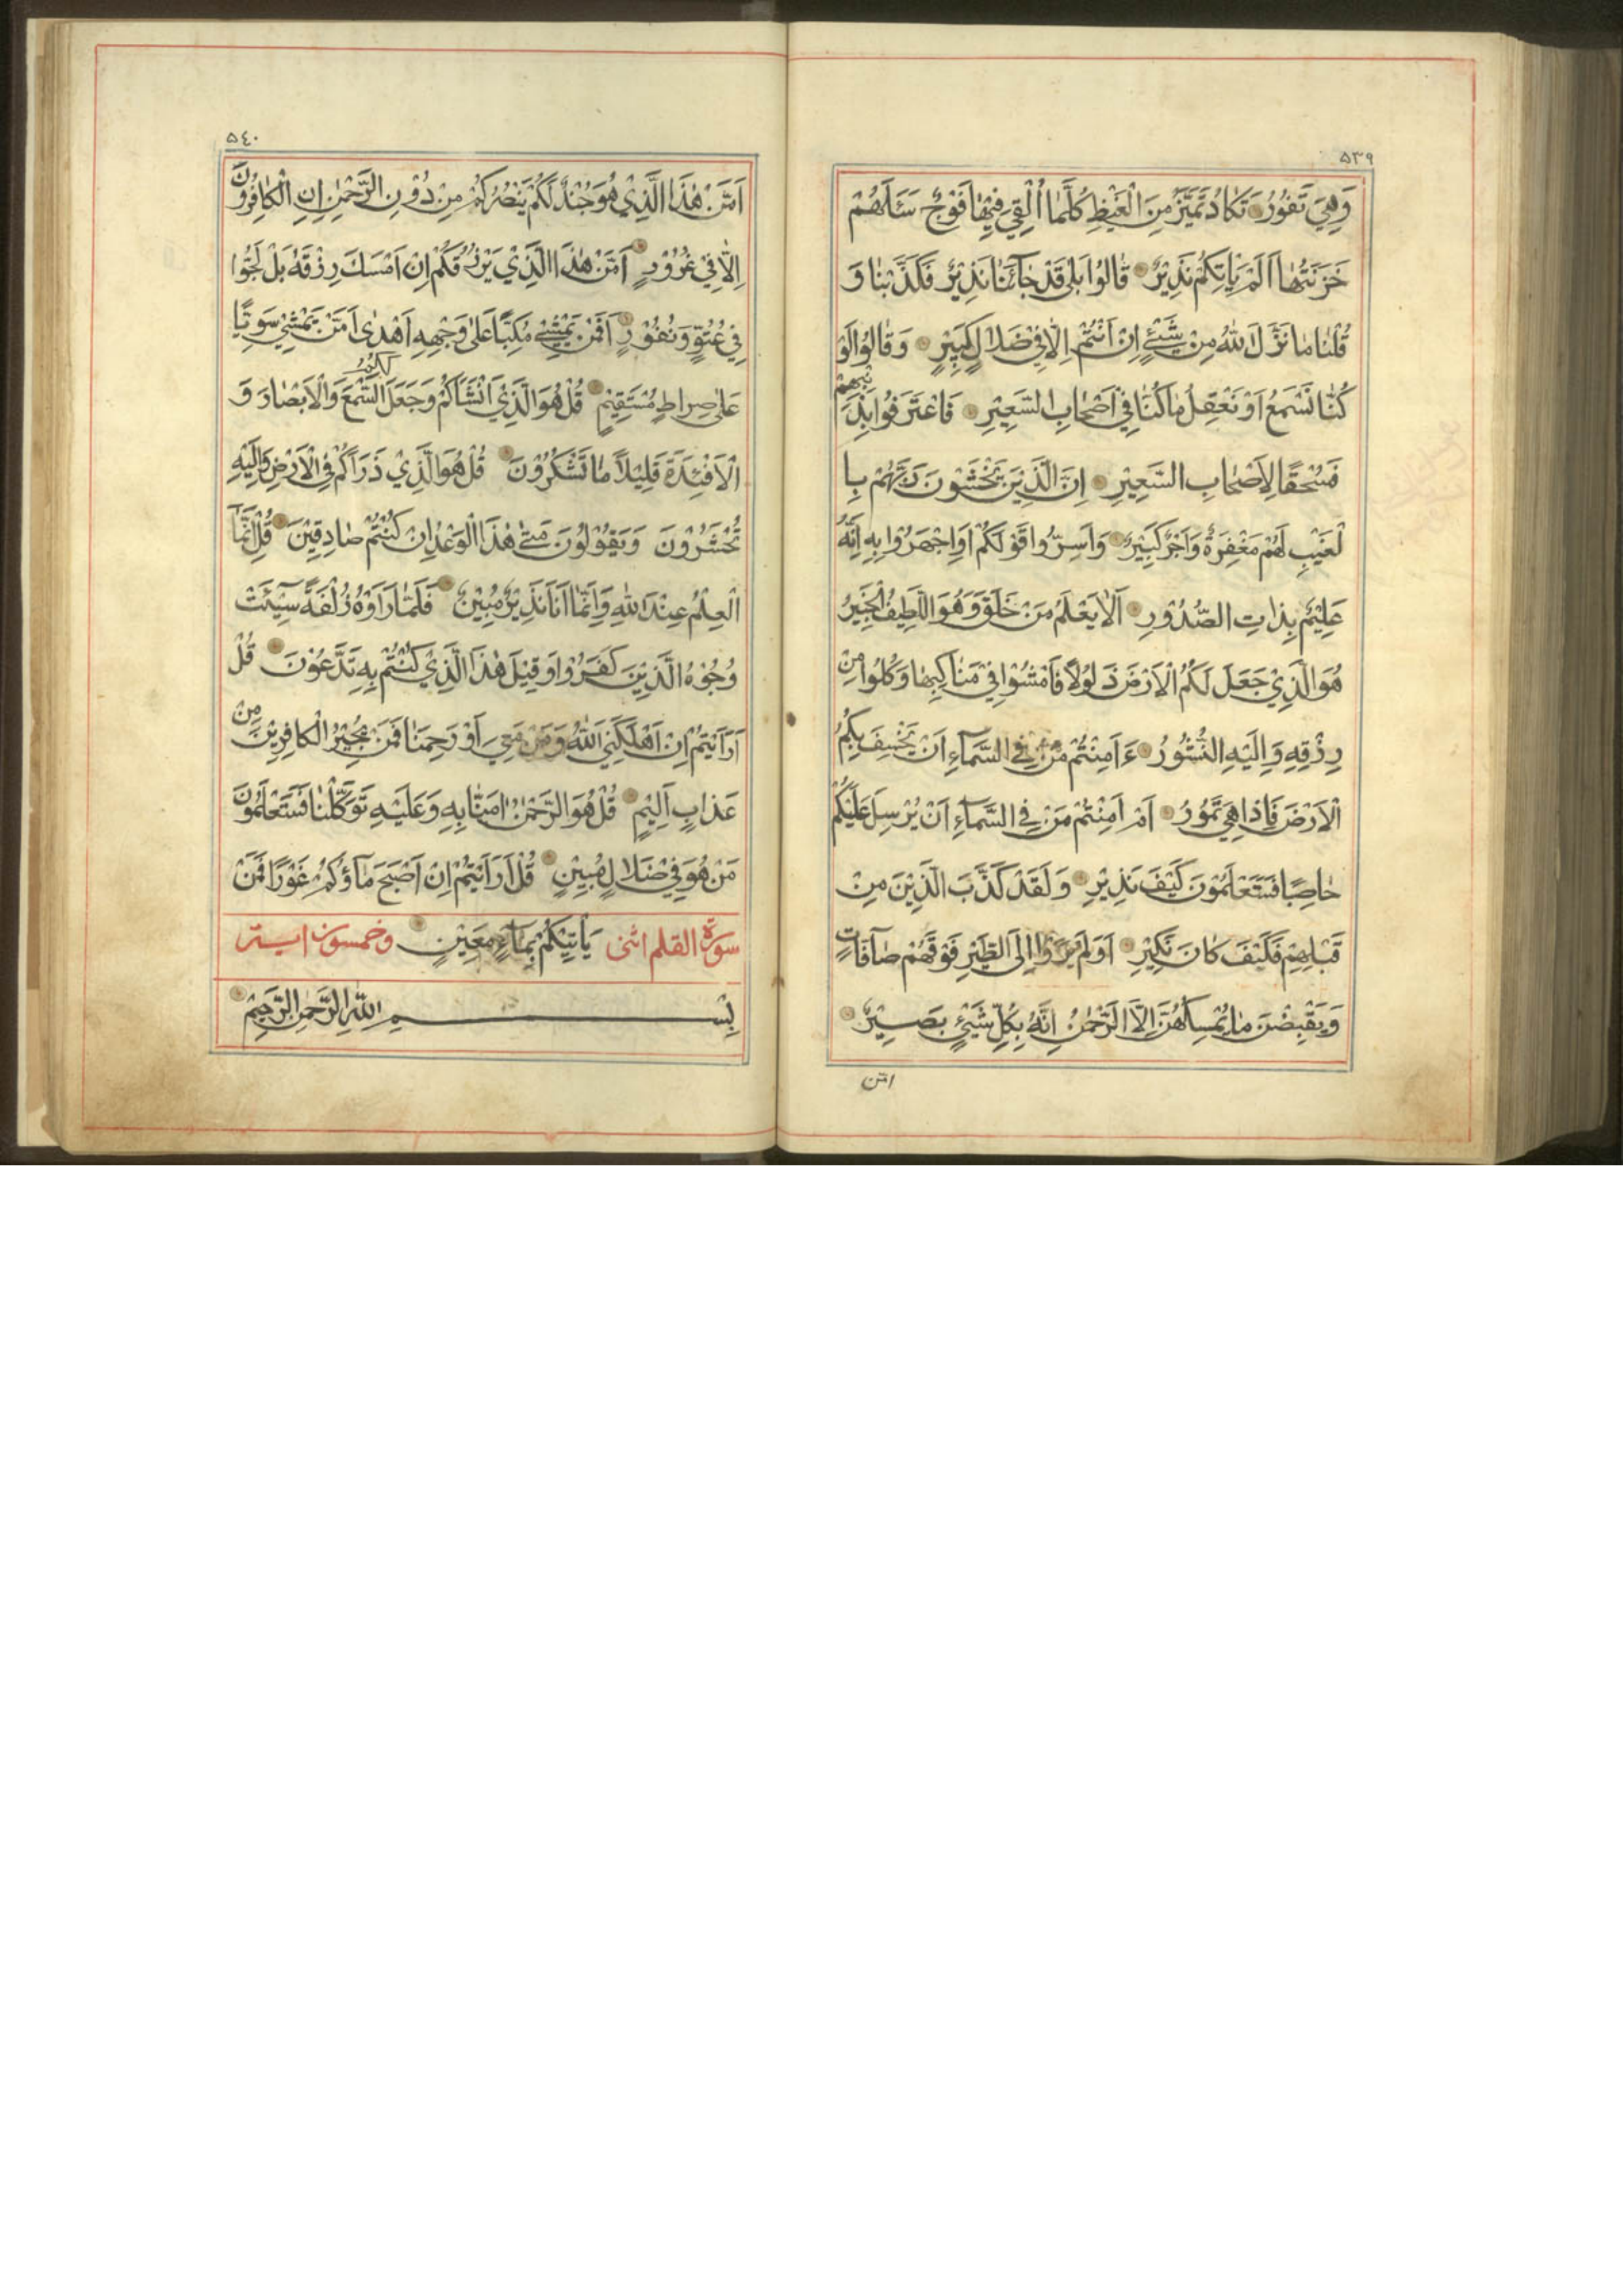 ٥٣٩
وَهِيَ تَفُوْرُ تَكَادُ تَمَيَّزُ مِنَ الْغَيْظِ كُلَّمَا اُلْقِيَ فِيْهَا فَوْجٌ سَئَلَهُمْ
خَزَنَتُهَا اَلَمْ يَاْتِكُمْ نَذِيْرٌ قَالُوْا بَلٰى قَدْ جَائَنَا نَذِيْرٌ فَكَذَّبْنَا وَ
قُلْنَا مَا نَزَّلَ اللهُ مِنْ شَيْئٍ اِنْ اَنْتُمْ اِلَّا فِيْ ضَلَالٍ كَبِيْرٍ وَقَالُوْا لَوْ
كُنَّا نَسْمَعُ اَوْ نَعْقِلُ مَا كُنَّا فِيْ اَصْحَابِ السَّعِيْرِ فَاعْتَرَفُوْا بِذَنْبِهِمْ
فَسُحْقًا لِاَصْحَابِ السَّعِيْرِ اِنَّ الَّذِيْنَ يَخْشَوْنَ رَبَّهُمْ بِا
لْغَيْبِ لَهُمْ مَغْفِرَةٌ وَاَجْرٌ كَبِيْرٌ وَاَسِرُّوا قَوْلَكُمْ اَوِاجْهَرُوْا بِهِ اِنَّهُ
عَلِيْمٌ بِذَاتِ الصُّدُوْرِ اَلَا يَعْلَمُ مَنْ خَلَقَ وَهُوَ اللَّطِيْفُ الْخَبِيْرُ
هُوَ الَّذِيْ جَعَلَ لَكُمُ الْاَرْضَ ذَلُوْلًا فَامْشُوْا فِيْ مَنَاكِبِهَا وَكُلُوْا مِنْ
رِزْقِهِ وَاِلَيْهِ النُّشُوْرُ ءَاَمِنْتُمْ مَنْ فِي السَّمَآءِ اَنْ يَخْسِفَ بِكُمُ
الْاَرْضَ فَاِذَا هِيَ تَمُوْرُ اَمْ اَمِنْتُمْ مَنْ فِي السَّمَآءِ اَنْ يُرْسِلَ عَلَيْكُمْ
حَاصِبًا فَسَتَعْلَمُوْنَ كَيْفَ نَذِيْرِ وَلَقَدْ كَذَّبَ الَّذِيْنَ مِنْ
قَبْلِهِمْ فَكَيْفَ كَانَ نَكِيْرِ اَوَلَمْ يَرَوْا اِلَى الطَّيْرِ فَوْقَهُمْ صَآفَّاتٍ
وَيَقْبِضْنَ مَا يُمْسِكُهُنَّ اِلَّا الرَّحْمٰنُ اِنَّهُ بِكُلِّ شَيْئٍ بَصِيْرٌ
امّن
٥٤٠
اَمَّنْ هٰذَا الَّذِيْ هُوَ جُنْدٌ لَكُمْ يَنْصُرُكُمْ مِنْ دُوْنِ الرَّحْمٰنِ اِنِ الْكَافِرُوْنَ
اِلَّا فِيْ غُرُوْرٍ اَمَّنْ هٰذَا الَّذِيْ يَرْزُقُكُمْ اِنْ اَمْسَكَ رِزْقَهُ بَلْ لَجُّوْا
فِيْ عُتُوٍّ وَنُفُوْرٍ اَفَمَنْ يَمْشِيْ مُكِبًّا عَلٰى وَجْهِهِ اَهْدٰى اَمَّنْ يَمْشِيْ سَوِيًّا
عَلٰى صِرَاطٍ مُسْتَقِيْمٍ قُلْ هُوَ الَّذِيْ اَنْشَاَكُمْ وَجَعَلَ لَكُمُ السَّمْعَ وَالْاَبْصَارَ وَ
الْاَفْئِدَةَ قَلِيْلًا مَا تَشْكُرُوْنَ قُلْ هُوَ الَّذِيْ ذَرَاَكُمْ فِي الْاَرْضِ وَاِلَيْهِ
تُحْشَرُوْنَ وَيَقُوْلُوْنَ مَتٰى هٰذَا الْوَعْدُ اِنْ كُنْتُمْ صَادِقِيْنَ قُلْ اِنَّمَا
الْعِلْمُ عِنْدَ اللهِ وَاِنَّمَا اَنَا نَذِيْرٌ مُبِيْنٌ فَلَمَّا رَاَوْهُ زُلْفَةً سِيْئَتْ
وُجُوْهُ الَّذِيْنَ كَفَرُوْا وَقِيْلَ هٰذَا الَّذِيْ كُنْتُمْ بِهِ تَدَّعُوْنَ قُلْ
اَرَاَيْتُمْ اِنْ اَهْلَكَنِيَ اللهُ وَمَنْ مَعِيَ اَوْ رَحِمَنَا فَمَنْ يُجِيْرُ الْكَافِرِيْنَ مِنْ
عَذَابٍ اَلِيْمٍ قُلْ هُوَ الرَّحْمٰنُ اٰمَنَّا بِهِ وَعَلَيْهِ تَوَكَّلْنَا فَسَتَعْلَمُوْنَ
مَنْ هُوَ فِيْ ضَلَالٍ مُبِيْنٍ قُلْ اَرَاَيْتُمْ اِنْ اَصْبَحَ مَآؤُكُمْ غَوْرًا فَمَنْ
سورة القلم اثنى يَاْتِيْكُمْ بِمَآءٍ مَعِيْنٍ وخمسون اية
بِسْمِ اللهِ الرَّحْمٰنِ الرَّحِيْمِ